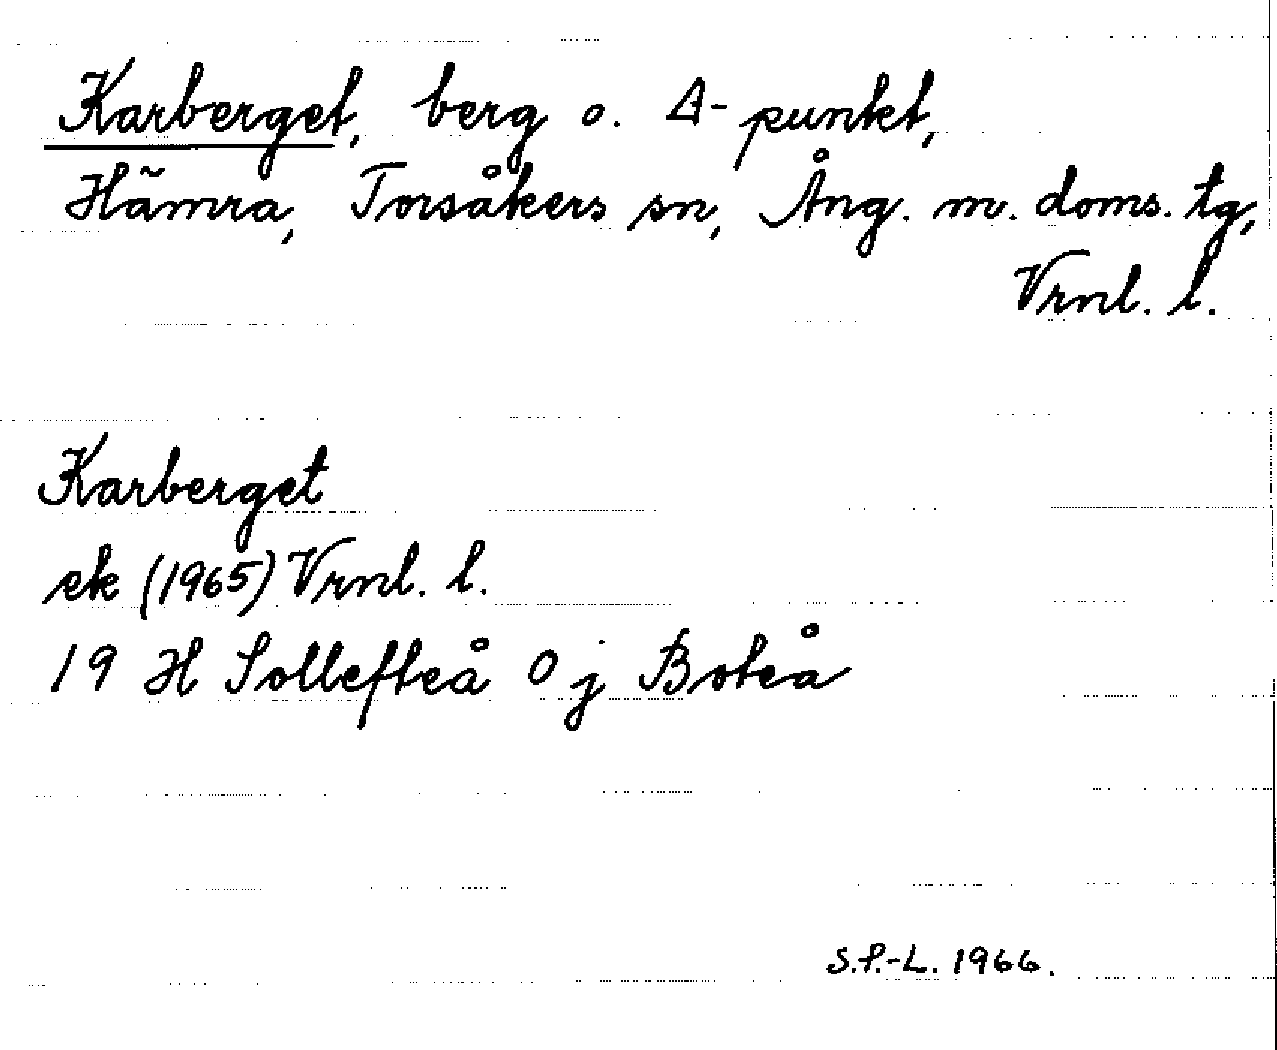 Karberget, berg o. Δ-punkt,
Hämra, Torsåkers sn, Ång. m. doms. tg,
Vrnl. l.
Karberget
ek (1965) Vrnl. l.
19 H Sollefteå 0 j Boteå
S.P.-L. 1966.